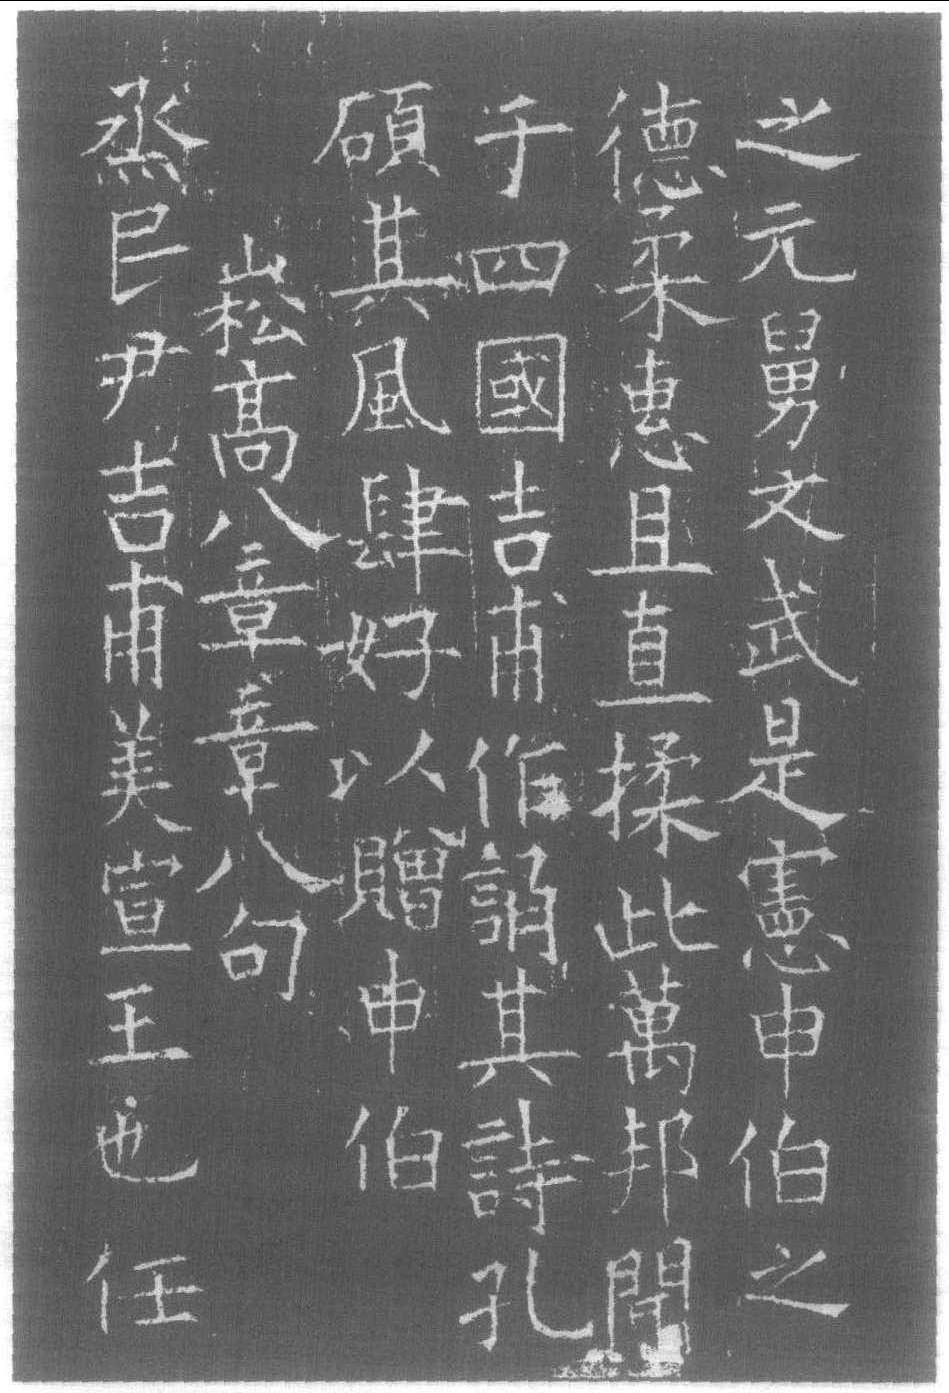 之元舅文武是憲申伯之
德柔惠且直揉此萬邦聞
于四國吉甫作誦其詩孔
碩其風肆好以贈申伯
崧髙八章章八句
烝民尹吉甫美宣王也任